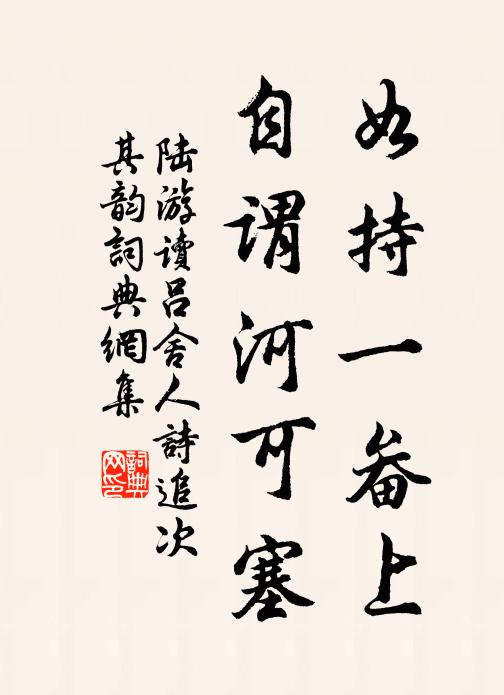 如持一畚上
自谓河可塞
陆游读吕舍人詩追次
其韵詞典網集
詞典
网印